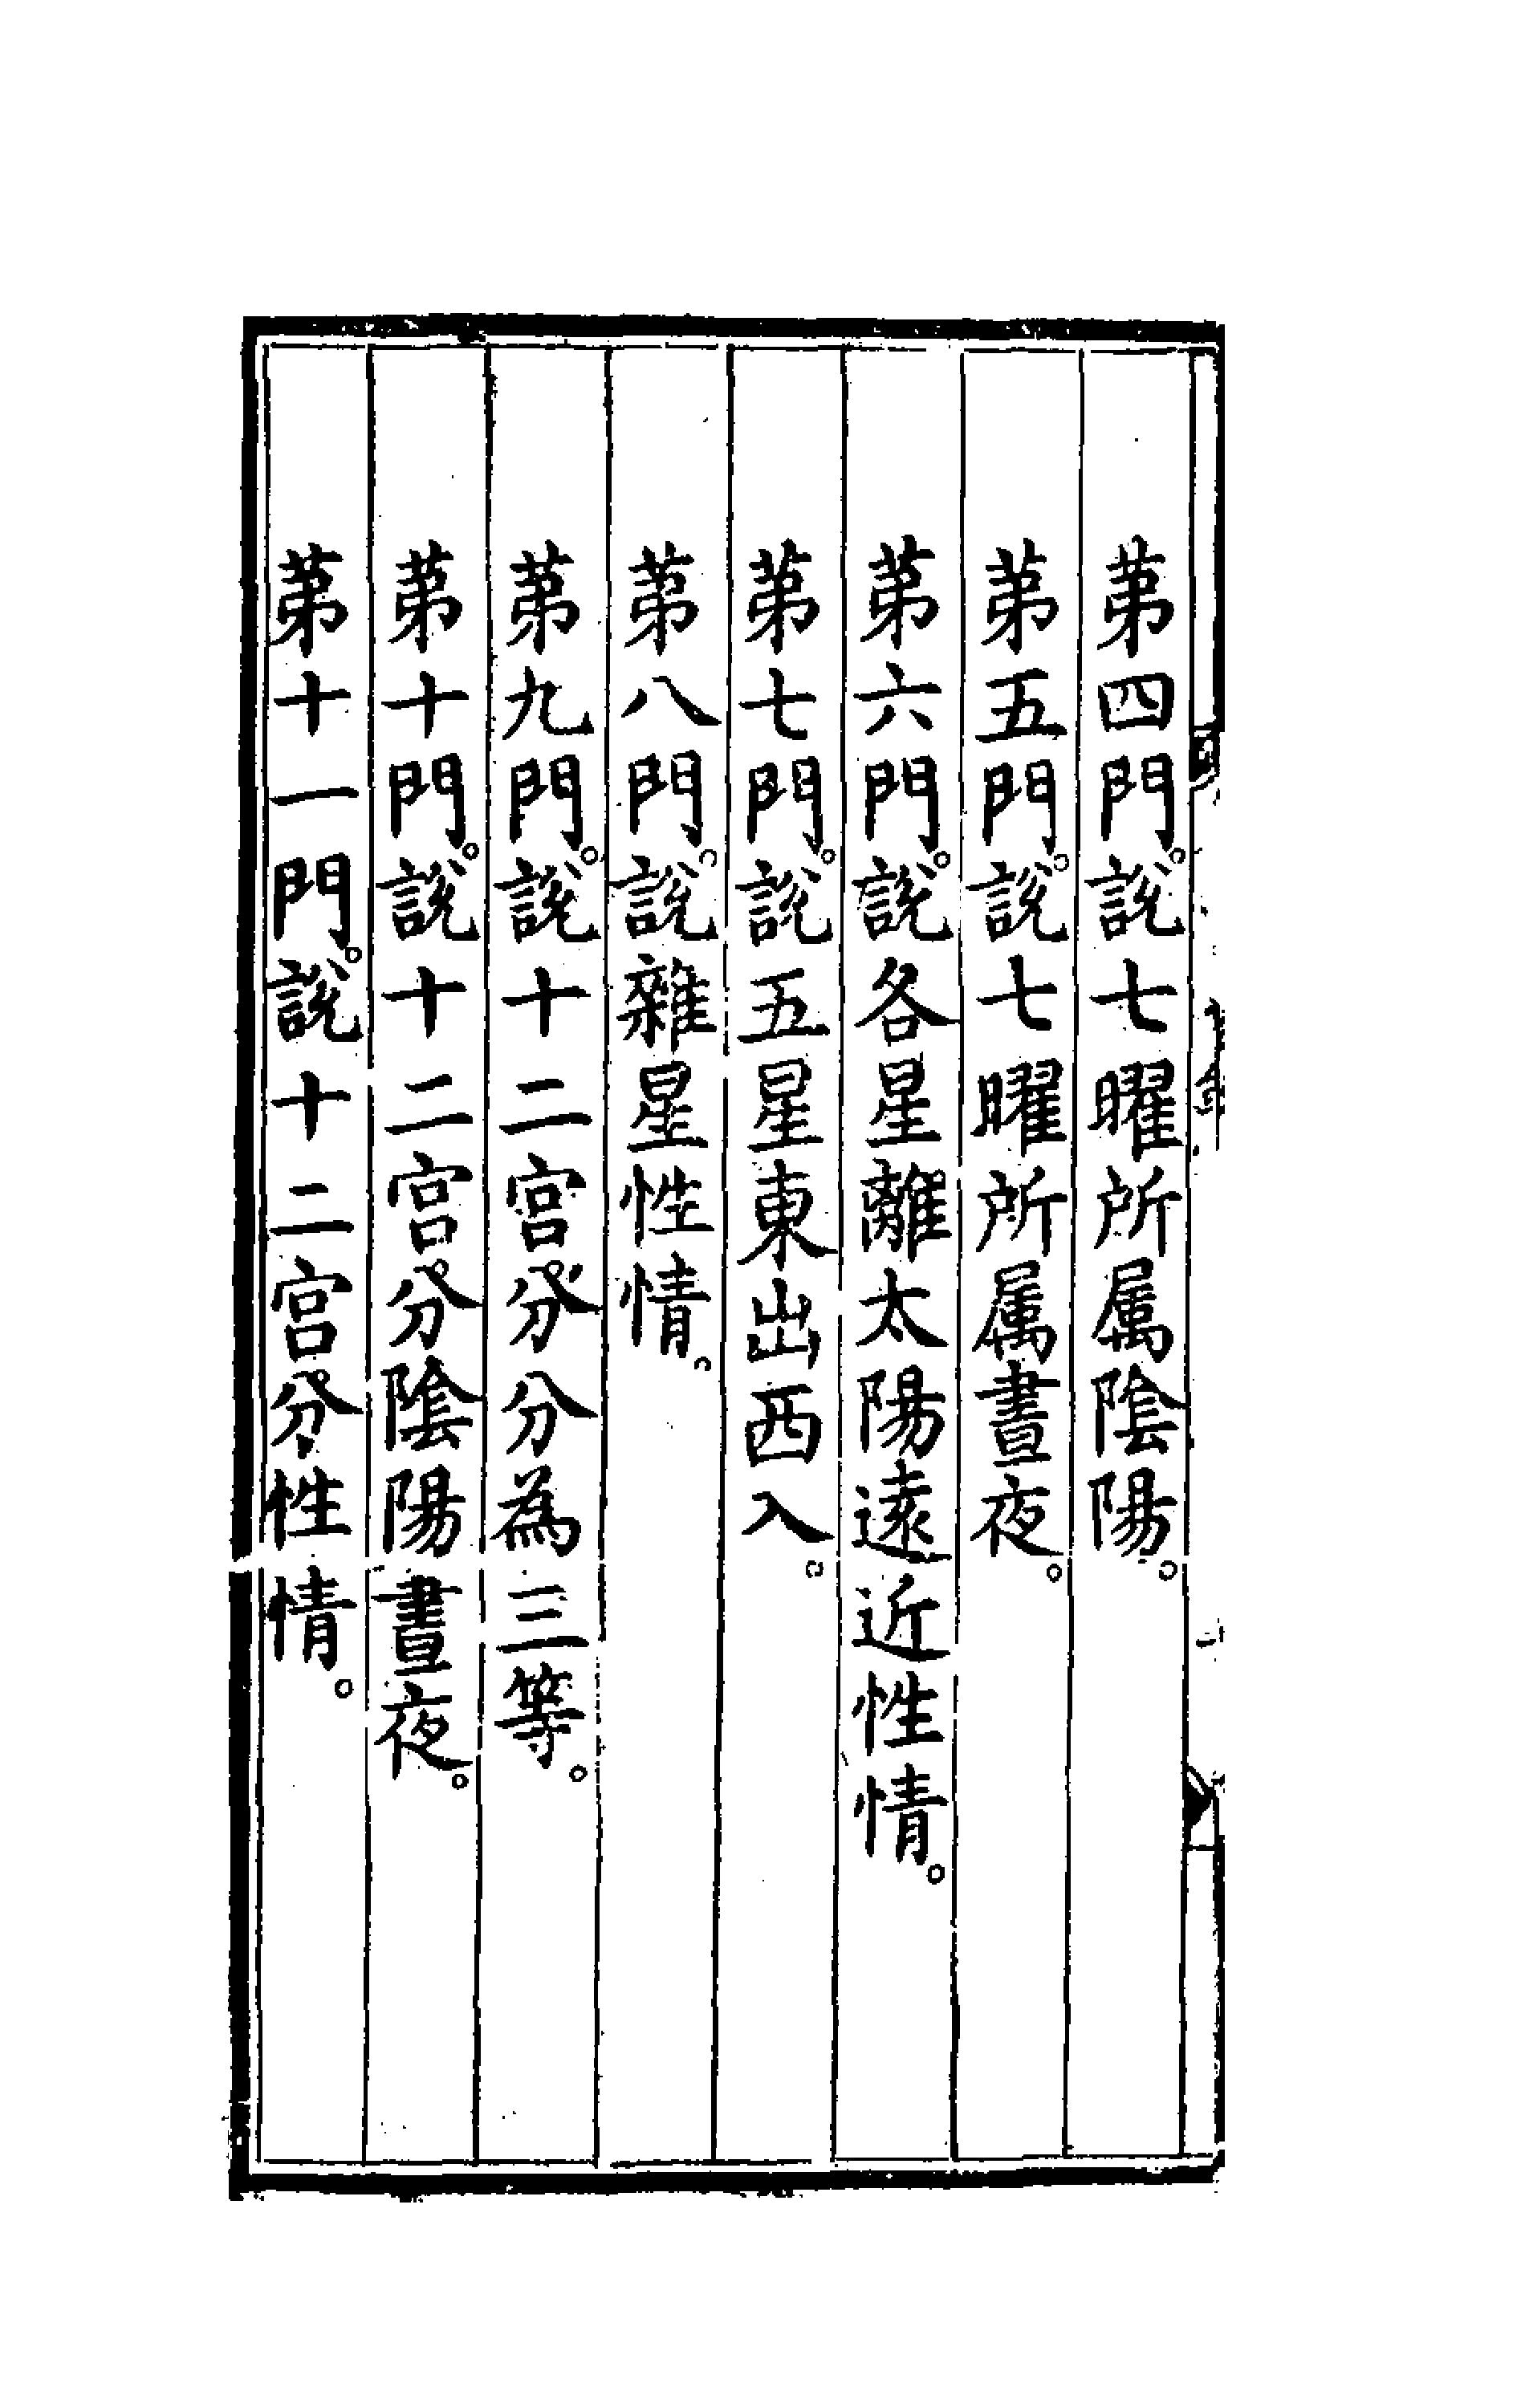 第四門。說七曜所属陰陽。
第五門。說七曜所属晝夜。
第六門。說各星離太陽遠近性情。
第七門。說五星東出西入。
第八門。說雜星性情。
第九門。說十二宮分分為三等。
第十門。說十二宮分陰陽晝夜。
第十一門。說十二宮分性情。